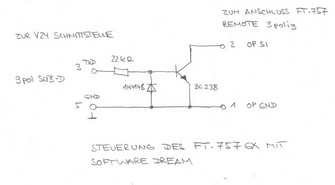 ZUM ANSCHLUSS FT-757
REMOTE 3polig
ZUR V24 SCHNITTSTELLE
2 OP SI
3 TXD
22kΩ
9pol SUB-D
1N4148
BC 238
5 GND
1 OP GND
STEUERUNG DES FT-757GX MIT
SOFTWARE DREAM